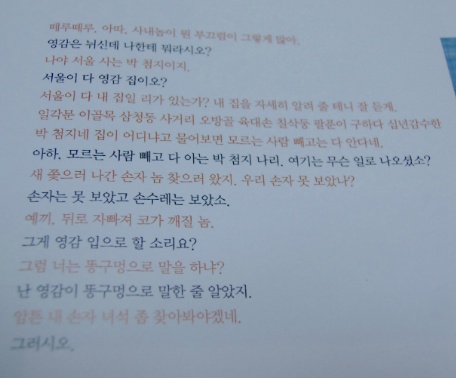 떼루떼루. 아따. 사내놈이 뭔 부끄럼이 그렇게 많아.
영감은 뉘신데 나한테 뭐라시오?
나야 서울 사는 박 첨지이지.
서울이 다 영감 집이오?
서울이 다 내 집일 리가 있는가? 내 집을 자세히 알려 줄 테니 잘 듣게.
일각문 이골목 삼청동 사거리 오방골 육대손 칠삭둥 팔푼이 구하다 십년감수한
박 첨지네 집이 어디냐고 물어보면 모르는 사람 빼고는 다 안다네.
아하, 모르는 사람 빼고 다 아는 박 첨지 나리. 여기는 무슨 일로 나오셨소?
새 쫓으러 나간 손자 놈 찾으러 왔지. 우리 손자 못 보았나?
손자는 못 보았고 손수레는 보았소.
예끼. 뒤로 자빠져 코가 깨질 놈.
그게 영감 입으로 할 소리요?
그럼 너는 똥구멍으로 말을 하냐?
난 영감이 똥구멍으로 말한 줄 알았지.
암튼 내 손자 녀석 좀 찾아봐야겠네.
그러시오.